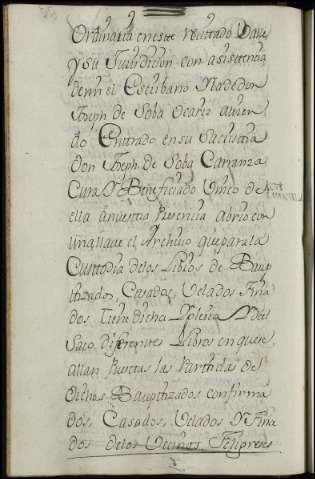 Ordinaria en este nuestrado Valle
y su Jurisdicion con asistencia
de mi el Escribano Nadedor
Joseph de Soba Ocariz auien
do Entrado en su Sacristia
Don Joseph de Soba Carranza
Cura Y Beneficiado Unico de
ella anuestra Presencia abrio con
una llaue el Archiuo que para la
Custodia de los Libros de Baup
tizados, Casados, Velados, Fina
dos tiene dicha Yglesia Y del
Saco diferentes Libros en que se
allan Puestas las Partidas de
dichos Bauptizados confirma
dos, Casados, Velados Y Fina
dos de los Vecinos, Feligreses